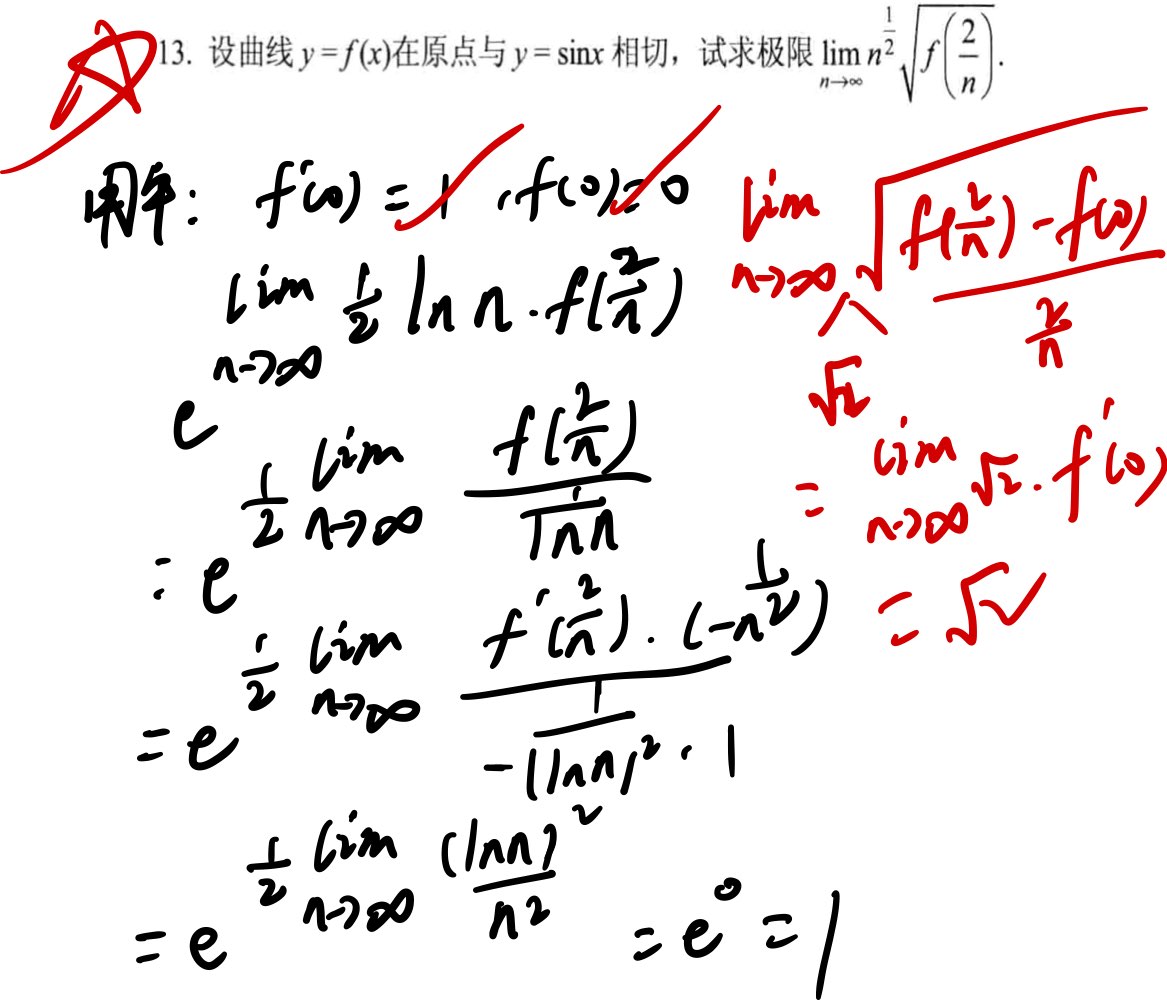 13. 设曲线 y = f(x)在原点与 y = sinx 相切，试求极限 lim_{n→∞} n^{1/2} √(f(2/n)).
解： f'(0) = 1 , f(0) = 0
e^{lim_{n→∞} 1/2 ln n · f(2/n)}
= e^{1/2 lim_{n→∞} f(2/n) / (1/ln n)}
= e^{1/2 lim_{n→∞} f'(2/n) · (-n^{1/2}) / (1/(-(ln n)^2 · 1))}
= e^{1/2 lim_{n→∞} (ln n)^2 / n^2} = e^0 = 1
lim_{n→∞} √2 √((f(2/n) - f(0)) / (2/n))
= lim_{n→∞} √2 · f'(0)
= √2